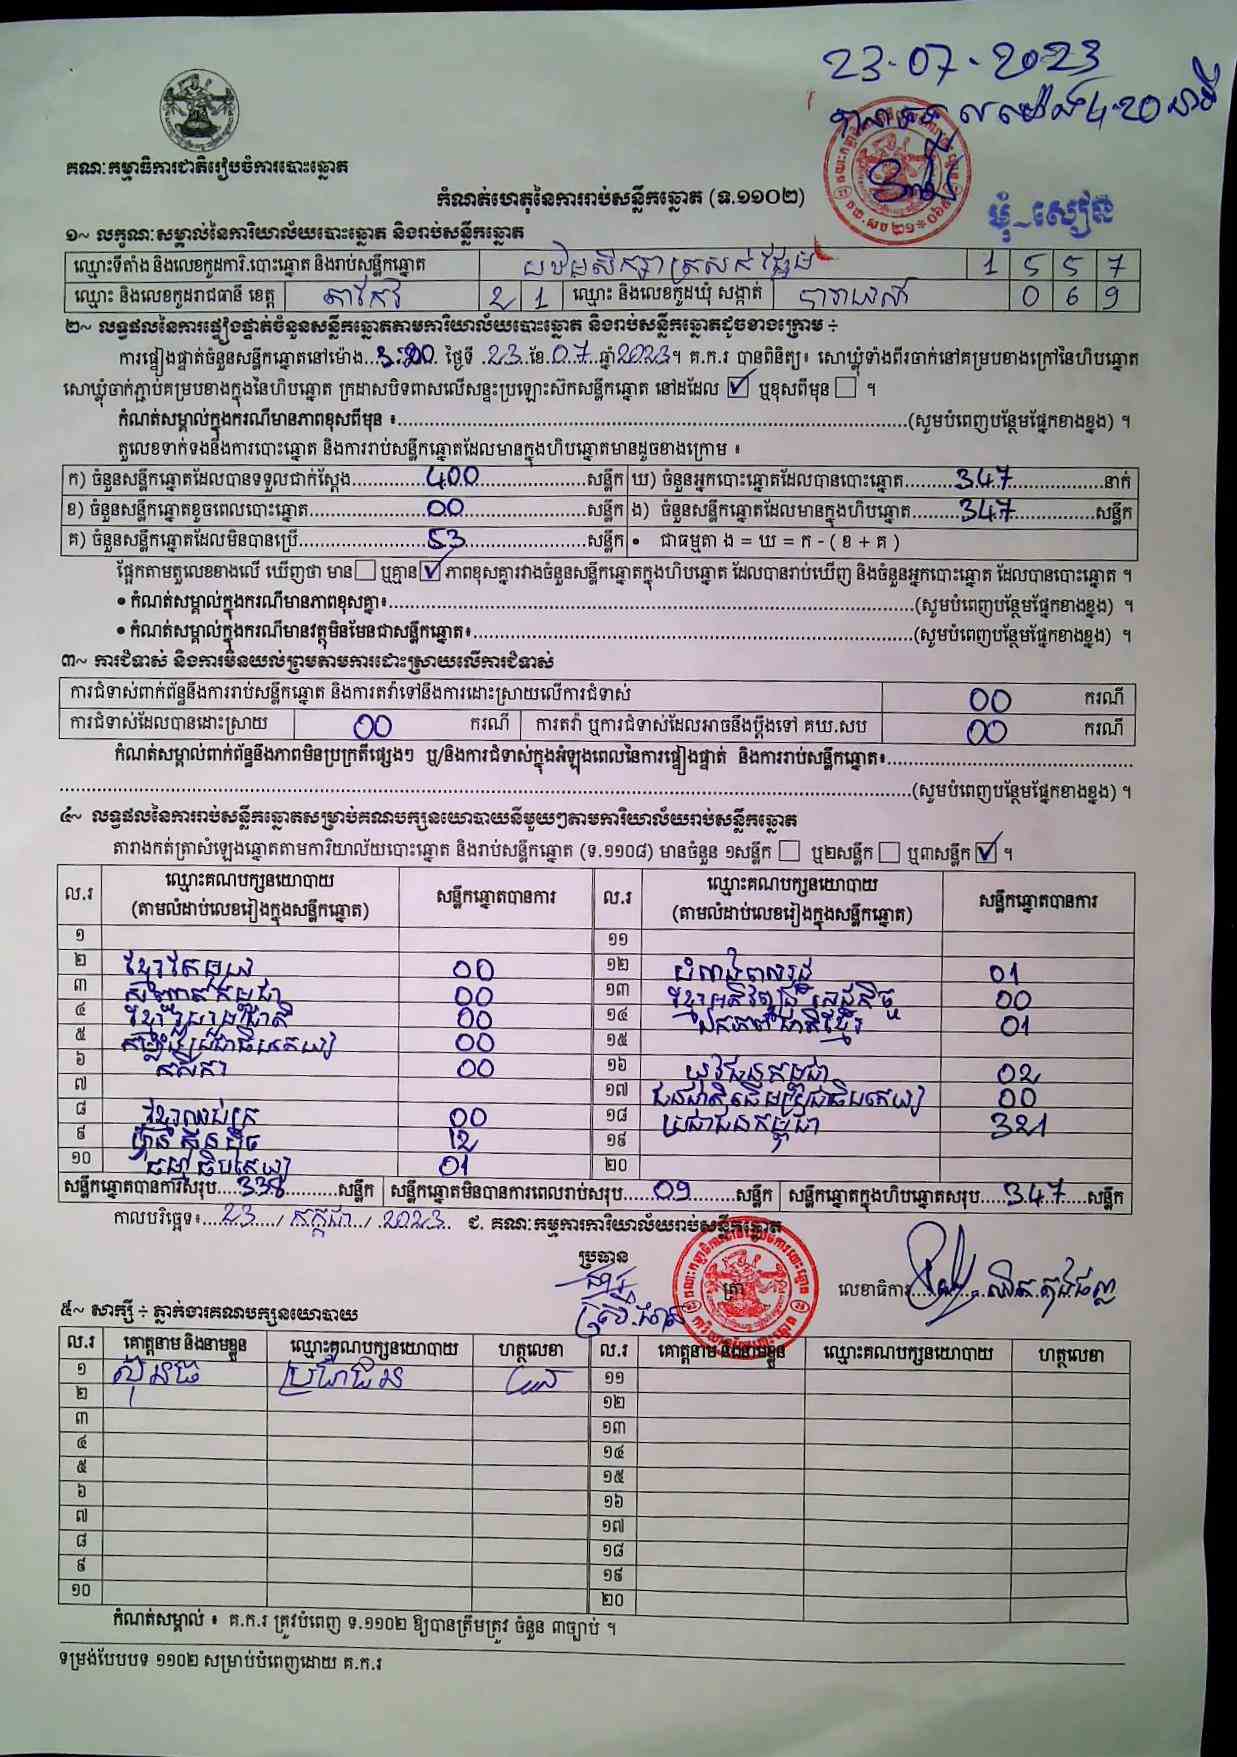 23-07-2023
ម៉ោង 4:20 នាទី
ឃុំ_សៀន
គណៈកម្មាធិការជាតិរៀបចំការបោះឆ្នោត
កំណត់ហេតុនៃការរាប់សន្លឹកឆ្នោត (ទ.១១០២)
១~ លក្ខណៈសម្គាល់នៃការិយាល័យបោះឆ្នោត និងរាប់សន្លឹកឆ្នោត
ឈ្មោះទីតាំង និងលេខកូដការិ.បោះឆ្នោត និងរាប់សន្លឹកឆ្នោត បឋមសិក្សាត្រសក់ផ្អែម 1 5 5 7
ឈ្មោះ និងលេខកូដរាជធានី ខេត្ត តាកែវ 2 1 ឈ្មោះ និងលេខកូដឃុំ សង្កាត់ 0 6 9
២~ លទ្ធផលនៃការផ្ទៀងផ្ទាត់ចំនួនសន្លឹកឆ្នោតតាមការិយាល័យបោះឆ្នោត និងរាប់សន្លឹកឆ្នោតដូចខាងក្រោម ÷
ការផ្ទៀងផ្ទាត់ចំនួនសន្លឹកឆ្នោតនៅម៉ោង...3:00... ថ្ងៃទី .23.ខែ.07..ឆ្នាំ2023។ គ.ក.រ បានពិនិត្យ៖ សោឃ្លុំទាំងពីរចាក់នៅគម្របខាងក្រៅនៃហិបឆ្នោត
សោឃ្លុំចាក់ភ្ជាប់គម្របខាងក្នុងនៃហិបឆ្នោត ក្រដាសបិទពាសលើសន្ទះប្រឡោះស៊កសន្លឹកឆ្នោត នៅដដែល ☑ ឬខុសពីមុន ☐ ។
កំណត់សម្គាល់ក្នុងករណីមានភាពខុសពីមុន ៖............(សូមបំពេញបន្ថែមផ្នែកខាងខ្នង) ។
តួលេខទាក់ទងនឹងការបោះឆ្នោត និងការរាប់សន្លឹកឆ្នោតដែលមានក្នុងហិបឆ្នោតមានដូចខាងក្រោម ៖
ក) ចំនួនសន្លឹកឆ្នោតដែលបានទទួលជាក់ស្តែង......400......សន្លឹក ឃ) ចំនួនអ្នកបោះឆ្នោតដែលបានបោះឆ្នោត......347......នាក់
ខ) ចំនួនសន្លឹកឆ្នោតខូចពេលបោះឆ្នោត......00......សន្លឹក ង) ចំនួនសន្លឹកឆ្នោតដែលមានក្នុងហិបឆ្នោត......347......សន្លឹក
គ) ចំនួនសន្លឹកឆ្នោតដែលមិនបានប្រើ......53......សន្លឹក • ជាធម្មតា ង = ឃ = ក - ( ខ + គ )
ផ្អែកតាមតួលេខខាងលើ ឃើញថា មាន☐ ឬគ្មាន☑ ភាពខុសគ្នារវាងចំនួនសន្លឹកឆ្នោតក្នុងហិបឆ្នោត ដែលបានរាប់ឃើញ និងចំនួនអ្នកបោះឆ្នោត ដែលបានបោះឆ្នោត ។
• កំណត់សម្គាល់ក្នុងករណីមានភាពខុសគ្នា៖............(សូមបំពេញបន្ថែមផ្នែកខាងខ្នង) ។
• កំណត់សម្គាល់ក្នុងករណីមានវត្ថុមិនមែនជាសន្លឹកឆ្នោត៖............(សូមបំពេញបន្ថែមផ្នែកខាងខ្នង) ។
៣~ ការជំទាស់ និងការមិនយល់ព្រមតាមការដោះស្រាយលើការជំទាស់
ការជំទាស់ពាក់ព័ន្ធនឹងការរាប់សន្លឹកឆ្នោត និងការតវ៉ាទៅនឹងការដោះស្រាយលើការជំទាស់ 00 ករណី
ការជំទាស់ដែលបានដោះស្រាយ 00 ករណី ការតវ៉ា ឬការជំទាស់ដែលអាចនឹងប្តឹងទៅ គឃ.សប 00 ករណី
កំណត់សម្គាល់ពាក់ព័ន្ធនឹងភាពមិនប្រក្រតីផ្សេងៗ ឬ/និងការជំទាស់ក្នុងអំឡុងពេលនៃការផ្ទៀងផ្ទាត់ និងការរាប់សន្លឹកឆ្នោត៖............
............(សូមបំពេញបន្ថែមផ្នែកខាងខ្នង) ។
៤~ លទ្ធផលនៃការរាប់សន្លឹកឆ្នោតសម្រាប់គណបក្សនយោបាយនីមួយៗតាមការិយាល័យរាប់សន្លឹកឆ្នោត
តារាងកត់ត្រាសំឡេងឆ្នោតតាមការិយាល័យបោះឆ្នោត និងរាប់សន្លឹកឆ្នោត (ទ.១១០៨) មានចំនួន ១សន្លឹក ☐ ឬ២សន្លឹក ☐ ឬ៣សន្លឹក ☑ ។
ល.រ ឈ្មោះគណបក្សនយោបាយ (តាមលំដាប់លេខរៀងក្នុងសន្លឹកឆ្នោត) សន្លឹកឆ្នោតបានការ ល.រ ឈ្មោះគណបក្សនយោបាយ (តាមលំដាប់លេខរៀងក្នុងសន្លឹកឆ្នោត) សន្លឹកឆ្នោតបានការ
១ ១១
២ ខ្មែរតែមួយ 00 ១២ 01
៣ សញ្ជាតិកម្ពុជា 00 ១៣ ខ្មែរអភិវឌ្ឍន៍សេដ្ឋកិច្ច 00
៤ ខ្មែររួបរួមជាតិ 00 ១៤ ឯកភាពជាតិខ្មែរ 01
៥ កម្លាំងប្រជាធិបតេយ្យ 00 ១៥
៦ កសិករ 00 ១៦ យុវជនកម្ពុជា 02
៧ ១៧ ជនជាតិដើមប្រជាធិបតេយ្យ 00
៨ ខ្មែរឈប់ក្រ 00 ១៨ ប្រជាជនកម្ពុជា 321
៩ ហ៊្វុនស៊ិនប៉ិច 12 ១៩
១០ ធម្មាធិបតេយ្យ 01 ២០
សន្លឹកឆ្នោតបានការសរុប....338....សន្លឹក សន្លឹកឆ្នោតមិនបានការពេលរាប់សរុប....09....សន្លឹក សន្លឹកឆ្នោតក្នុងហិបឆ្នោតសរុប....347....សន្លឹក
កាលបរិច្ឆេទ៖...23.../ កក្កដា../ .2023.. ជ. គណៈកម្មការការិយាល័យរាប់សន្លឹកឆ្នោត
ប្រធាន ត្រា លេខាធិការ
៥~ សាក្សី ÷ ភ្នាក់ងារគណបក្សនយោបាយ
ល.រ គោត្តនាម និងនាមខ្លួន ឈ្មោះគណបក្សនយោបាយ ហត្ថលេខា ល.រ គោត្តនាម និងនាមខ្លួន ឈ្មោះគណបក្សនយោបាយ ហត្ថលេខា
១ ប្រជាជន ១១
២ ១២
៣ ១៣
៤ ១៤
៥ ១៥
៦ ១៦
៧ ១៧
៨ ១៨
៩ ១៩
១០ ២០
កំណត់សម្គាល់ ៖ គ.ក.រ ត្រូវបំពេញ ទ.១១០២ ឱ្យបានត្រឹមត្រូវ ចំនួន ៣ច្បាប់ ។
ទម្រង់បែបបទ ១១០២ សម្រាប់បំពេញដោយ គ.ក.រ